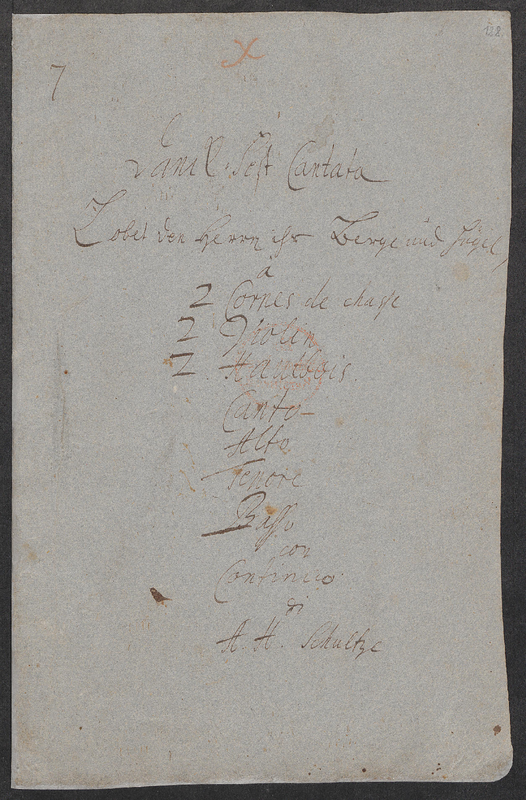 122
7
Fest Cantata
Lobet den Herrn ihr Berge und Hügel,
à
2 Cornes de chasse
2 Violin
2 Hautbois.
Canto
Alto
Tenore
Basso
con
Continuo
di
A. H. Schultze